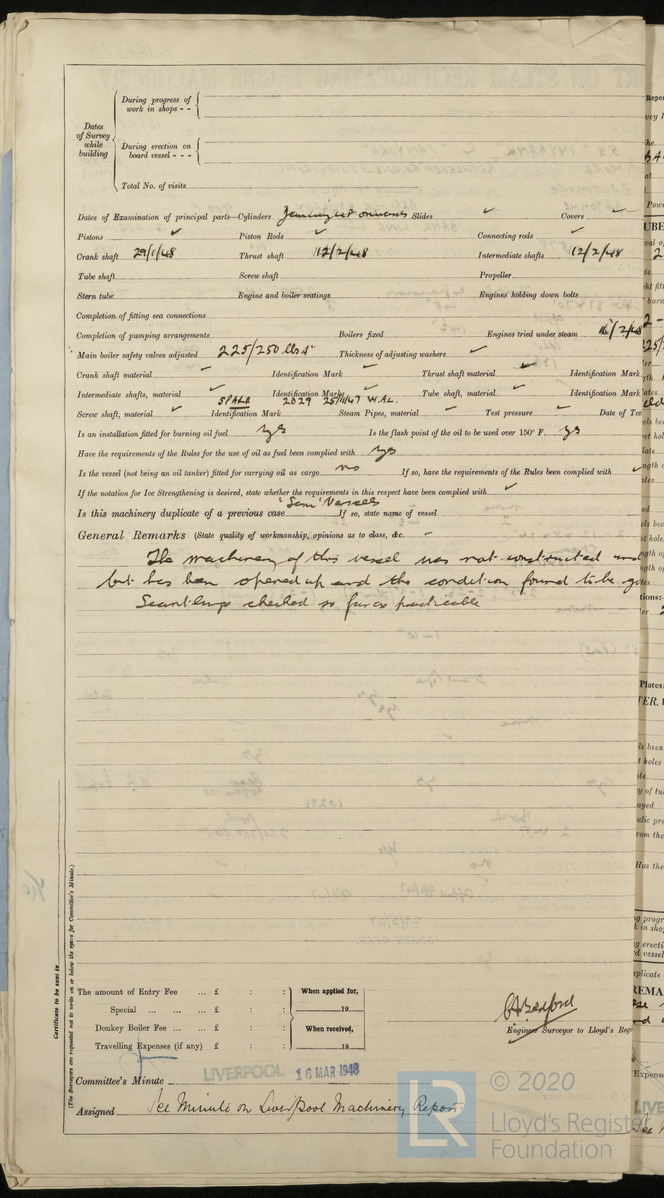 Dates of Survey while building
During progress of work in shops - -
During erection on board vessel - - -
Total No. of visits
Dates of Examination of principal parts—Cylinders Slides ✓ Covers ✓
Pistons ✓ Piston Rods ✓ Connecting rods ✓
Crank shaft 29/1/48 Thrust shaft 12/2/48 Intermediate shafts 12/2/48
Tube shaft Screw shaft Propeller
Stern tube Engine and boiler seatings Engines holding down bolts
Completion of fitting sea connections
Completion of pumping arrangements Boilers fixed Engines tried under steam 16/2/48
Main boiler safety valves adjusted 225/250 lbs Thickness of adjusting washers ✓
Crank shaft material ✓ Identification Mark ✓ Thrust shaft material ✓ Identification Mark
Intermediate shafts, material ✓ Identification Marks Tube shaft, material ✓ Identification Mark
SPARE 2029 25/11/47 W.A.L.
Screw shaft, material ✓ Identification Mark Steam Pipes, material ✓ Test pressure ✓ Date of Tes
Is an installation fitted for burning oil fuel yes Is the flash point of the oil to be used over 150° F. yes
Have the requirements of the Rules for the use of oil as fuel been complied with yes
Is the vessel (not being an oil tanker) fitted for carrying oil as cargo no If so, have the requirements of the Rules been complied with ✓
If the notation for Ice Strengthening is desired, state whether the requirements in this respect have been complied with ✓
Is this machinery duplicate of a previous case 'Sam' Vessels If so, state name of vessel
General Remarks (State quality of workmanship, opinions as to class, &c.
The machinery of this vessel was not constructed und
but has been opened up and the condition found to be go
Scantlings checked so far as practicable
The amount of Entry Fee ... £ : : When applied for,
Special ... ... ... £ : : 19
Donkey Boiler Fee ... ... £ : : When received,
Travelling Expenses (if any) £ : : 19
Engineer Surveyor to Lloyd's Reg
Committee's Minute LIVERPOOL 16 MAR 1948
Assigned See Minute on Liverpool Machinery Report
Certificate to be sent to
(The Surveyors are requested not to write on or below the space for Committee's Minute.)
© 2020
Lloyd's Register
Foundation
LR